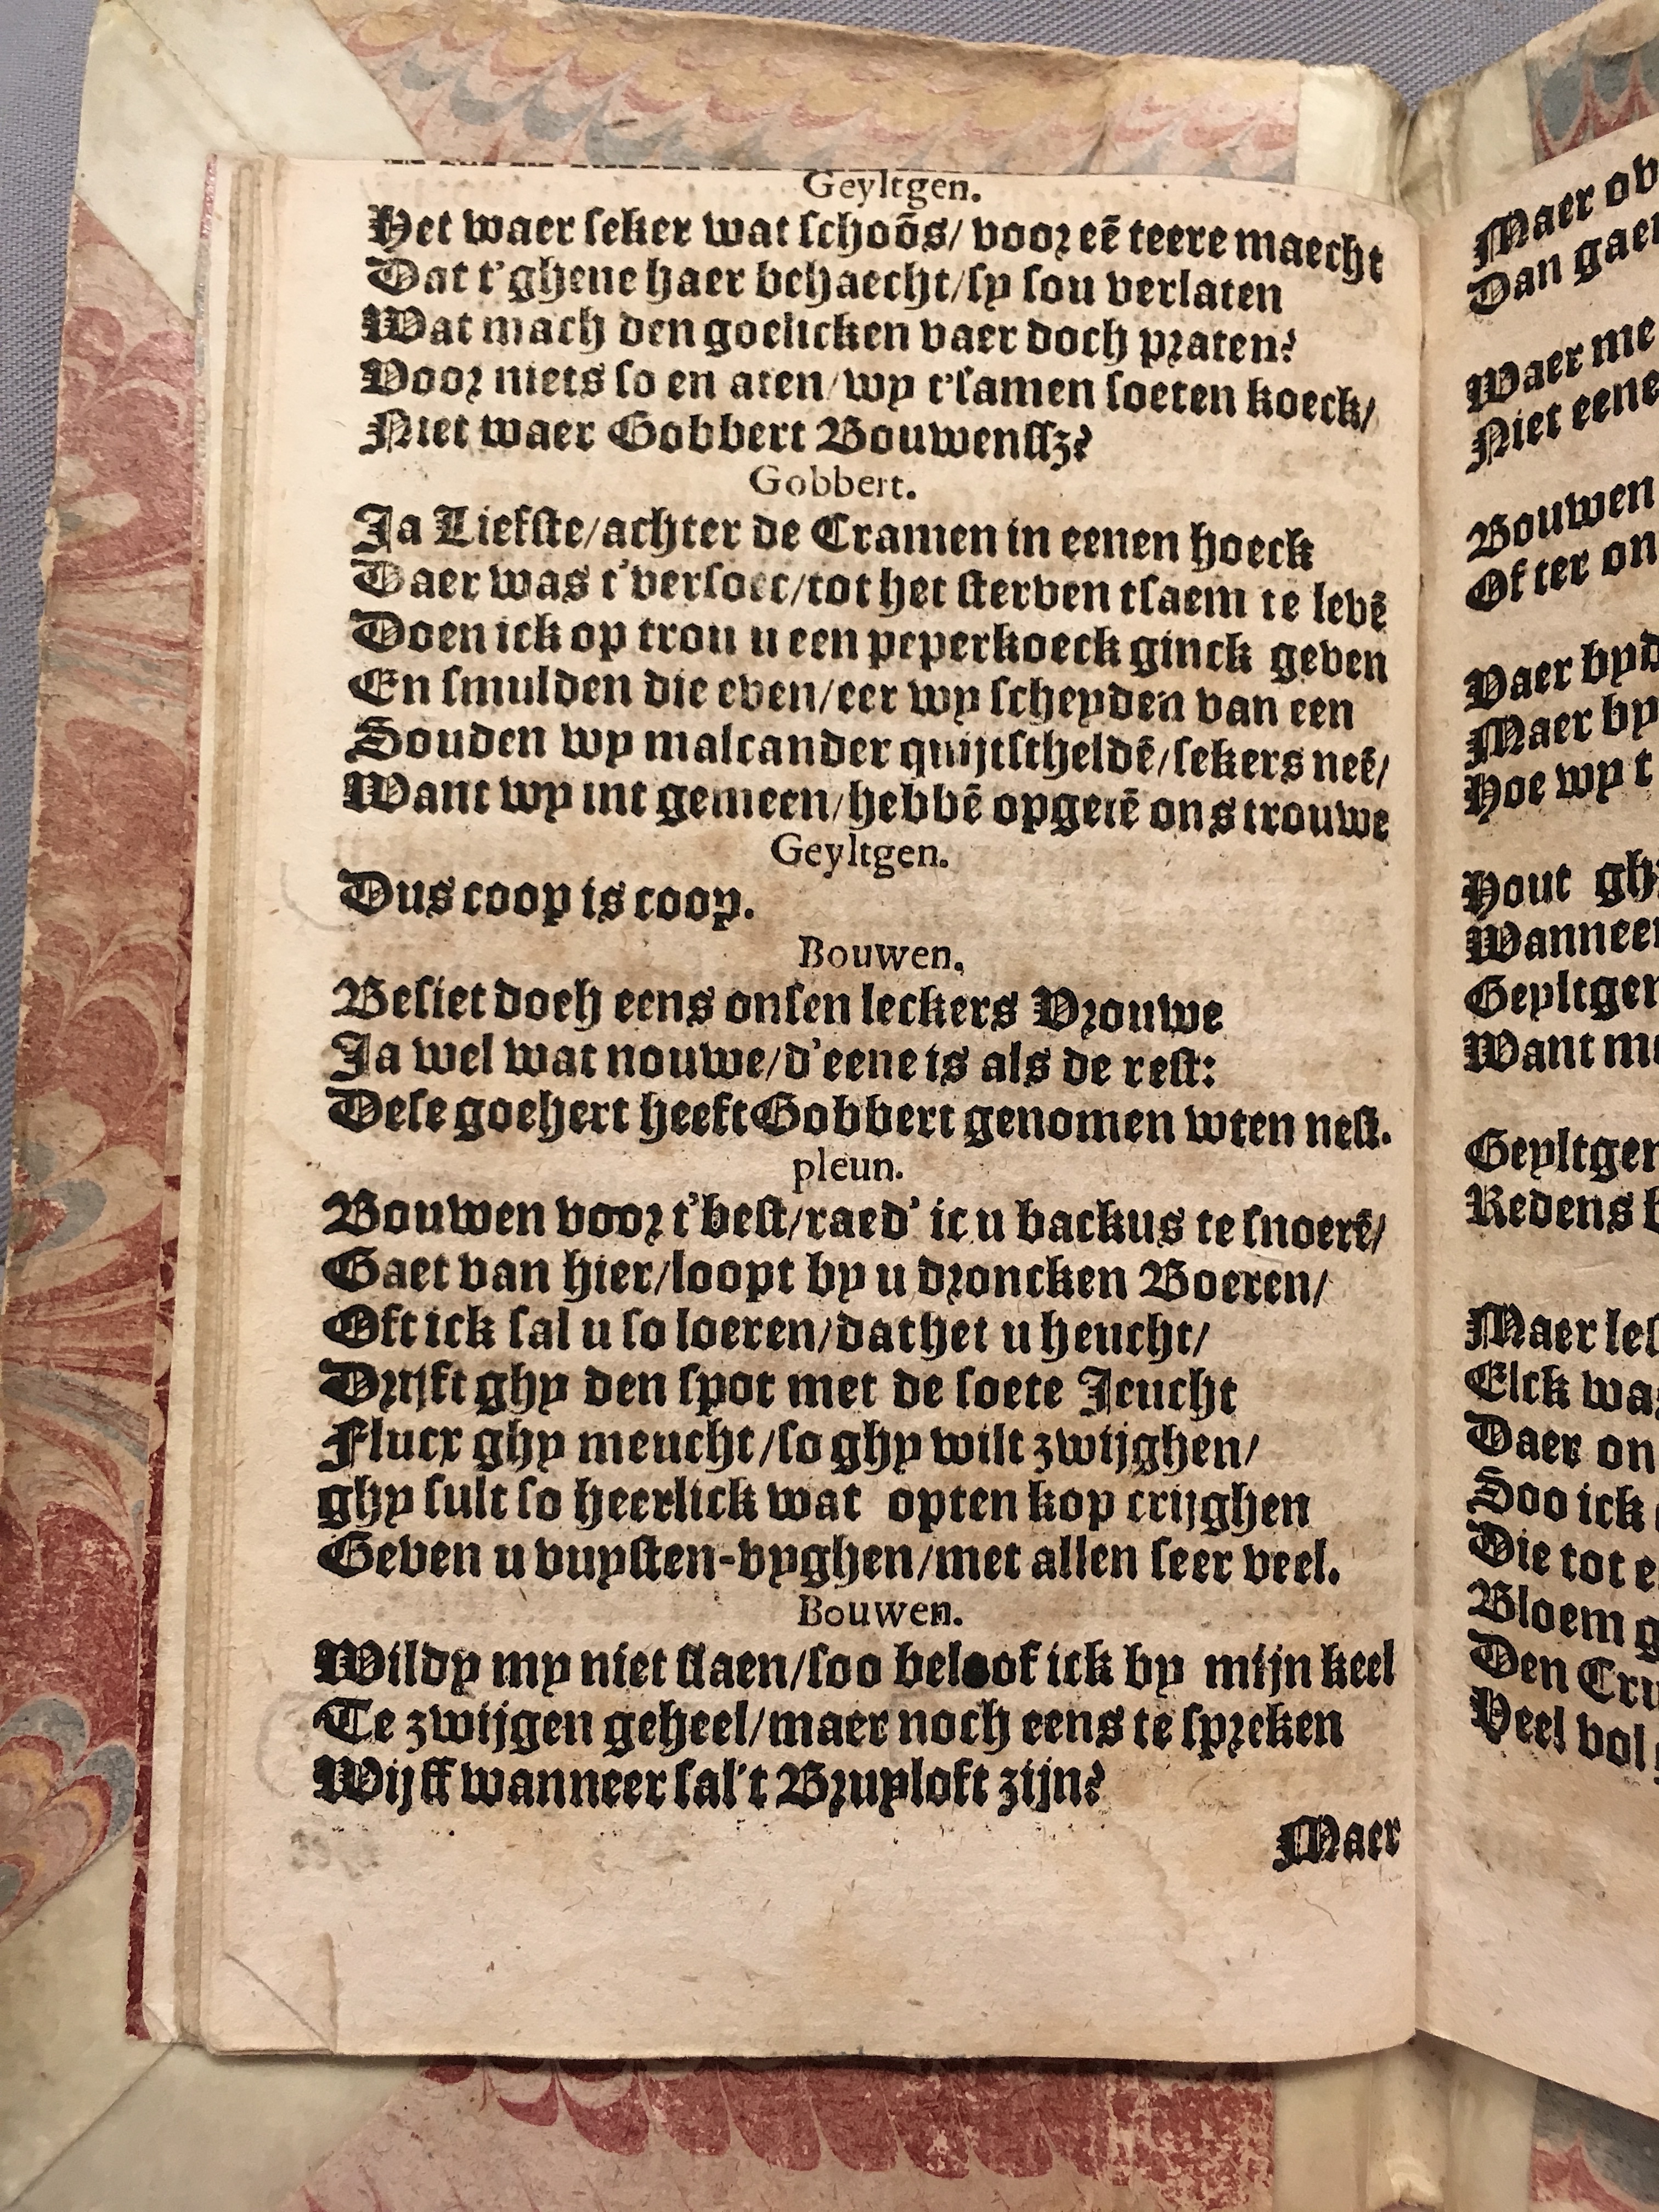 Geyltgen.
Het waer seker wat schoõs/ voor eẽ teere maecht
Dat t'ghene haer behaecht/sy sou verlaten
Wat mach den goelicken vaer doch praten?
Voor niets so en aten/wy t'samen soeten koeck/
Niet waer Gobbert Bouwenssz?
Gobbert.
Ja Liefste/achter de Cramen in eenen hoeck
Daer was t'versoet/tot het sterven tsaem te levẽ
Doen ick op trou u een peperkoeck ginck geven
En smulden die even/eer wy scheyden van een
Souden wy malcander quijtstheldẽ/sekers neẽ/
Want wy int gemeen/hebbẽ opgetẽ ons trouwe
Geyltgen.
Dus coop is coop.
Bouwen.
Besiet doeh eens onsen leckers Vrouwe
Ja wel wat nouwe/d'eene is als de rest:
Dese goehert heeft Gobbert genomen wten nest.
pleun.
Bouwen voor t'best/raed' ic u backus te snoerẽ/
Gaet van hier/loopt by u droncken Boeren/
Oft ick sal u so loeren/dat het u heucht/
Drijft ghy den spot met de soete Jeucht
Flucx ghy meucht/so ghy wilt zwijghen/
ghy sult so heerlick wat opten kop crijghen
Geven u vuysten-vyghen/met allen seer veel.
Bouwen.
Wildy my niet slaen/soo beloof ick by mijn keel
Te zwijgen geheel/maer noch eens te spreken
Wijff wanneer sal't Bruyloft zijn?
Maer
Maer
Dan
Waer me
Niet eene
Bouwen
Of ter on
Vaer
Maer by
Hoe wy t
Hout
Geyltgen
Want
Redens
Maer
Elck
Daer on
Soo ick
Die tot
Bloem
Den
Veel vol